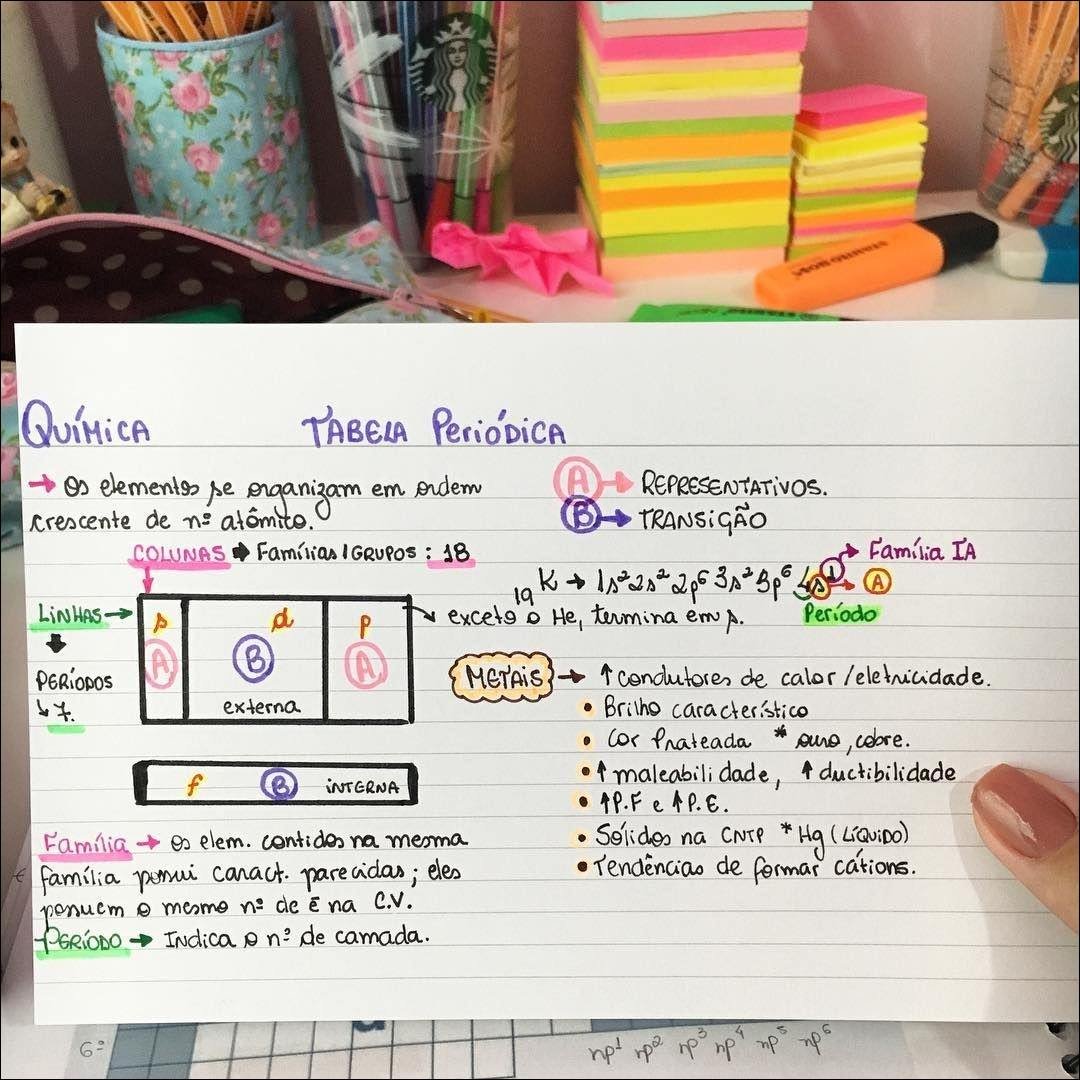 QUÍMICA TABELA PERIÓDICA
→ Os elementos se organizam em ordem
crescente de nº atômico.
COLUNAS → Famílias/GRUPOS : 18
LINHAS →
PERÍODOS
↳ 7.
s d p
A B A
externa
f B INTERNA
Família → Os elem. contidos na mesma
família possui caract. parecidas; eles
possuem o mesmo nº de ē na C.V.
PERÍODO → Indica o nº de camada.
A → REPRESENTATIVOS.
B → TRANSIÇÃO
→ Família IA
19 K → 1s² 2s² 2p⁶ 3s² 3p⁶ 4s¹ → A
Período
↘ exceto o He, termina em s.
METAIS → ↑ condutores de calor/eletricidade.
• Brilho característico
• Cor Prateada * ouro, cobre.
• ↑ maleabilidade, ↑ ductibilidade
• ↑P.F e ↑P.E.
• Sólidos na CNTP * Hg (LÍQUIDO)
• Tendências de formar cátions.
6ª
np¹ np² np³ np⁴ np⁵ np⁶